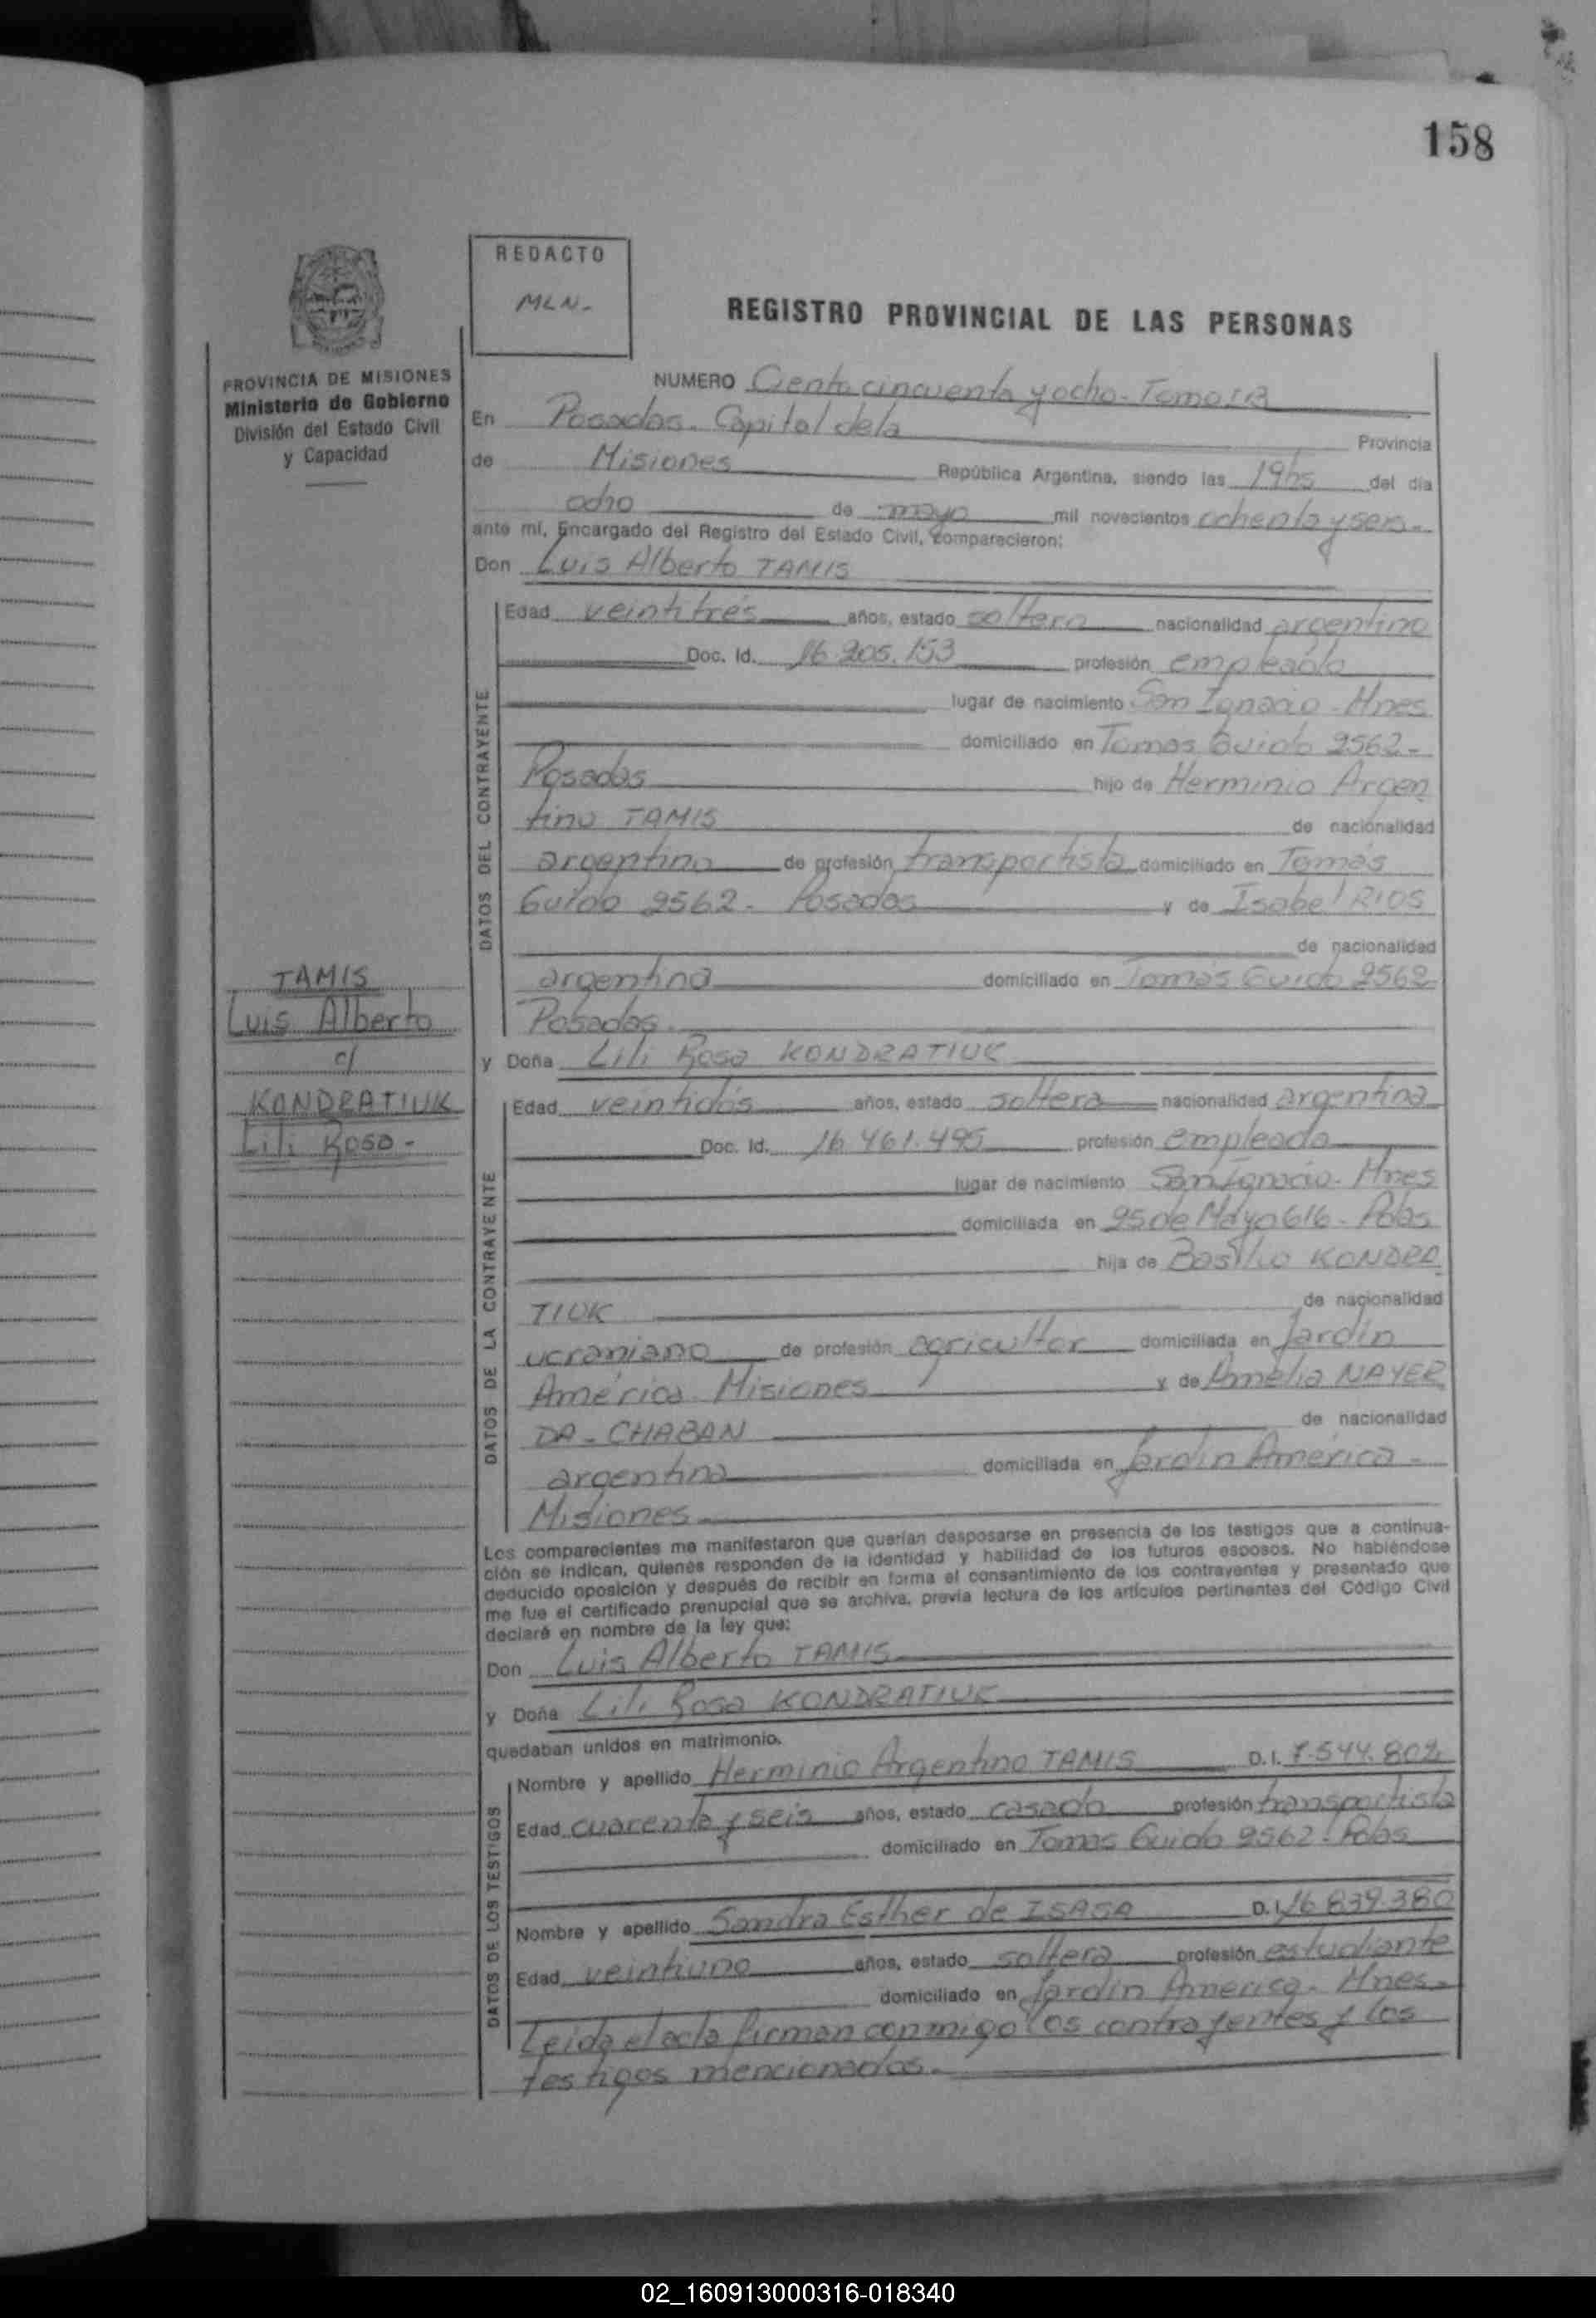 158
REDACTO
MLN-
REGISTRO PROVINCIAL DE LAS PERSONAS
PROVINCIA DE MISIONES
Ministerio de Gobierno
División del Estado Civil
y Capacidad
NUMERO Ciento cincuenta y ocho - Tomo
En Posadas. Capital de la Provincia
de Misiones República Argentina, siendo las 19hs del día
ocho de mayo mil novecientos ochenta y seis.-
ante mí, Encargado del Registro del Estado Civil, comparecieron:
Don Luis Alberto TAMIS
DATOS DEL CONTRAYENTE
Edad veintitrés años, estado soltero nacionalidad argentino
Doc. Id. 16.205.153 profesión empleado
lugar de nacimiento San Ignacio - Mnes
domiciliado en Tomas Guido 2562-
Posadas hijo de Herminio Argen
tino TAMIS de nacionalidad
argentino de profesión transportista domiciliado en Tomás
Guido 2562- Posadas y de Isabel RIOS
de nacionalidad
argentina domiciliado en Tomás Guido 2562-
Posadas.
TAMIS
Luis Alberto
c/
KONDRATIUK
Lili Rosa-
y Doña Lili Rosa KONDRATIUK
DATOS DE LA CONTRAYENTE
Edad veintidós años, estado soltera nacionalidad argentina
Doc. Id. 16.461.495 profesión empleada
lugar de nacimiento San Ignacio - Mnes
domiciliada en 25 de Mayo 616 - Pdas
hija de Basilio KONDRA
TIUK de nacionalidad
ucraniano de profesión agricultor domiciliada en Jardín
América Misiones y de Amelia NAYER
DA - CHABAN de nacionalidad
argentina domiciliada en Jardín América -
Misiones
Los comparecientes me manifestaron que querían desposarse en presencia de los testigos que a continua-
ción se indican, quienes responden de la identidad y habilidad de los futuros esposos. No habiéndose
deducido oposición y después de recibir en forma el consentimiento de los contrayentes y presentado que
me fue el certificado prenupcial que se archiva, previa lectura de los artículos pertinentes del Código Civil
declaré en nombre de la ley que:
Don Luis Alberto TAMIS
y Doña Lili Rosa KONDRATIUK
quedaban unidos en matrimonio.
DATOS DE LOS TESTIGOS
Nombre y apellido Herminio Argentino TAMIS D.I. 7.544.802
Edad cuarenta y seis años, estado casado profesión transportista
domiciliado en Tomas Guido 2562 - Pdas
Nombre y apellido Sandra Esther de ISASA D.I. 16.839.380
Edad veintiuno años, estado soltera profesión estudiante
domiciliado en Jardín América - Mnes.
Leida el acta firman conmigo los contrayentes y los
testigos mencionados.
02_160913000316-018340